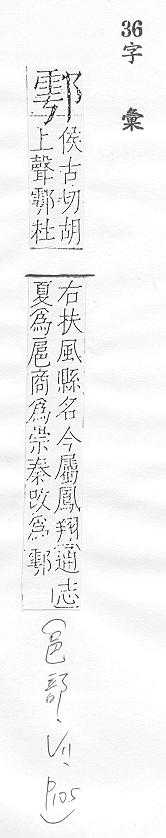 36字 彙
鄠
侯古切胡
上聲鄠杜
右扶風縣名今屬鳳翔通志
夏為扈商為崇秦改為鄠
(邑部、VII、P105)